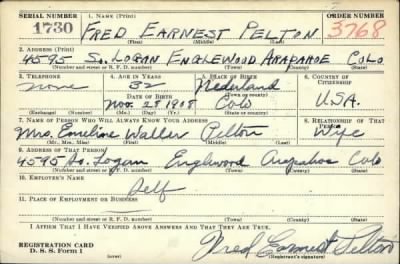 SERIAL NUMBER 1. NAME (Print) ORDER NUMBER
1730 FRED EARNEST PELTON 3768
(First) (Middle) (Last)
2. ADDRESS (Print)
4595 So. LOGAN ENGLEWOOD ARAPAHOE COLO
(Number and street or R. F. D. number) (Town) (County) (State)
3. TELEPHONE 4. AGE IN YEARS 5. PLACE OF BIRTH 6. COUNTRY OF CITIZENSHIP
none 32 Nederland
DATE OF BIRTH (Town or county)
Nov. 28 1908 Colo U.S.A.
(Exchange) (Number) (Mo.) (Day) (Yr.) (State or country)
7. NAME OF PERSON WHO WILL ALWAYS KNOW YOUR ADDRESS 8. RELATIONSHIP OF THAT PERSON
Mrs. Emeline Waller Pelton Wife
(Mr., Mrs., Miss) (First) (Middle) (Last)
9. ADDRESS OF THAT PERSON
4595 So. Logan Englewood Arapahoe Colo
(Number and street or R. F. D. number) (Town) (County) (State)
10. EMPLOYER'S NAME
Self
11. PLACE OF EMPLOYMENT OR BUSINESS
(Number and street or R. F. D. number) (Town) (County) (State)
I AFFIRM THAT I HAVE VERIFIED ABOVE ANSWERS AND THAT THEY ARE TRUE.
REGISTRATION CARD
D. S. S. Form 1 Fred Earnest Pelton
(Registrant's signature)